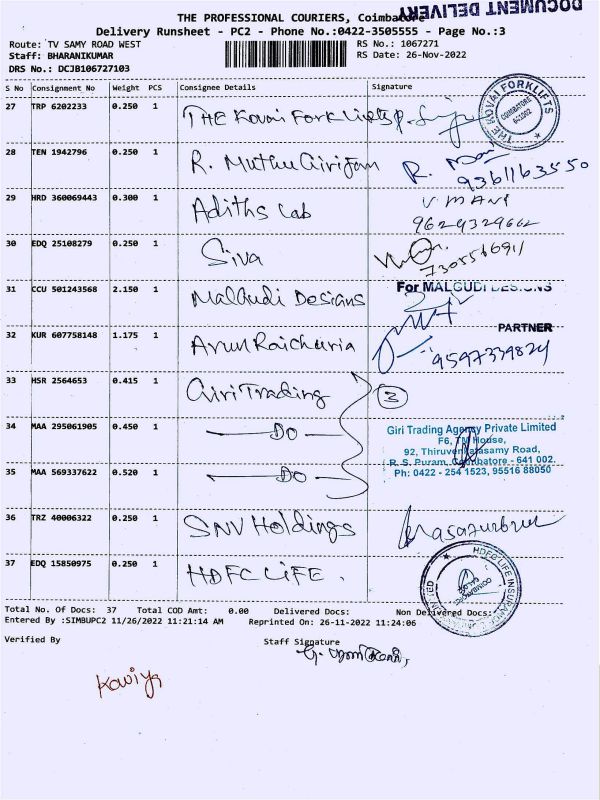 DOCUMENT DELIVERY
THE PROFESSIONAL COURIERS, Coimbatore
Delivery Runsheet - PC2 - Phone No.:0422-3505555 - Page No.:3
Route: TV SAMY ROAD WEST
RS No.: 1067271
Staff: BHARANIKUMAR
RS Date: 26-Nov-2022
DRS No.: DCJB106727103
S No Consignment No Weight PCS Consignee Details Signature
27 TRP 6202233 0.250 1 THE Kovai ForkLifts
THE KOVAI FORKLIFTS COIMBATORE
28 TEN 1942796 0.250 1 R. Muthu Girifam R.
9361163550
29 HRD 360069443 0.300 1 Adiths Lab V MANI
9629329662
30 EDQ 25108279 0.250 1 Siva
7305566911
31 CCU 501243568 2.150 1 Malgudi Designs For MALGUDI DESIGNS
PARTNER
32 KUR 607758148 1.175 1 Arun Raichuria
9597339824
33 HSR 2564653 0.415 1 Giri Trading 3
34 MAA 295061905 0.450 1 Do
Giri Trading Agency Private Limited
F6, TM House,
92, Thiruvenkatasamy Road,
R. S. Puram, Coimbatore - 641 002.
Ph: 0422 - 254 1523, 95516 88050
35 MAA 569337622 0.520 1 Do
36 TRZ 40006322 0.250 1 SNV Holdings
37 EDQ 15850975 0.250 1 HDFC LIFE.
HDFC LIFE INSURANCE LIMITED
Total No. Of Docs: 37 Total COD Amt: 0.00 Delivered Docs: Non Delivered Docs:
Entered By :SIMBUPC2 11/26/2022 11:21:14 AM Reprinted On: 26-11-2022 11:24:06
Verified By
Staff Signature
Kaviya